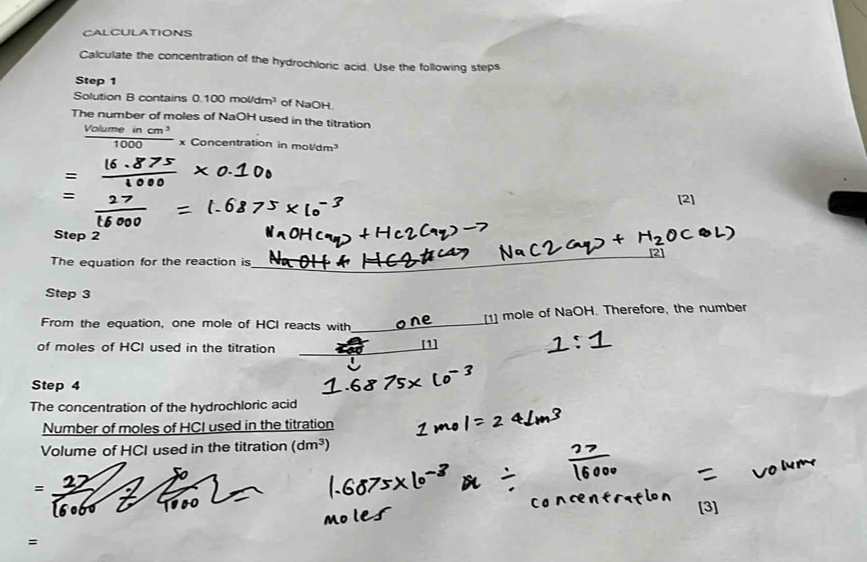 CALCULATIONS
Calculate the concentration of the hydrochloric acid. Use the following steps.
Step 1
Solution B contains 0.100 mol/dm³ of NaOH.
The number of moles of NaOH used in the titration
Volume in cm³
1000 x Concentration in mol/dm³
= 16.875 / 1000 × 0.100
= 27 / 16000 = 1.6875 × 10⁻³
[2]
Step 2
NaOH(aq) + HCl(aq) →
The equation for the reaction is NaCl(aq) + H₂O(L)
[2]
Step 3
From the equation, one mole of HCl reacts with one [1] mole of NaOH. Therefore, the number
of moles of HCl used in the titration [1] 1:1
1.6875 × 10⁻³
Step 4
The concentration of the hydrochloric acid
Number of moles of HCl used in the titration
Volume of HCl used in the titration (dm³)
1 mol = 24dm³
= 27 / 16000 ÷ 50 / 1000 =
1.6875 × 10⁻³ ÷ 27 / 16000 = volume
moles concentration [3]
=